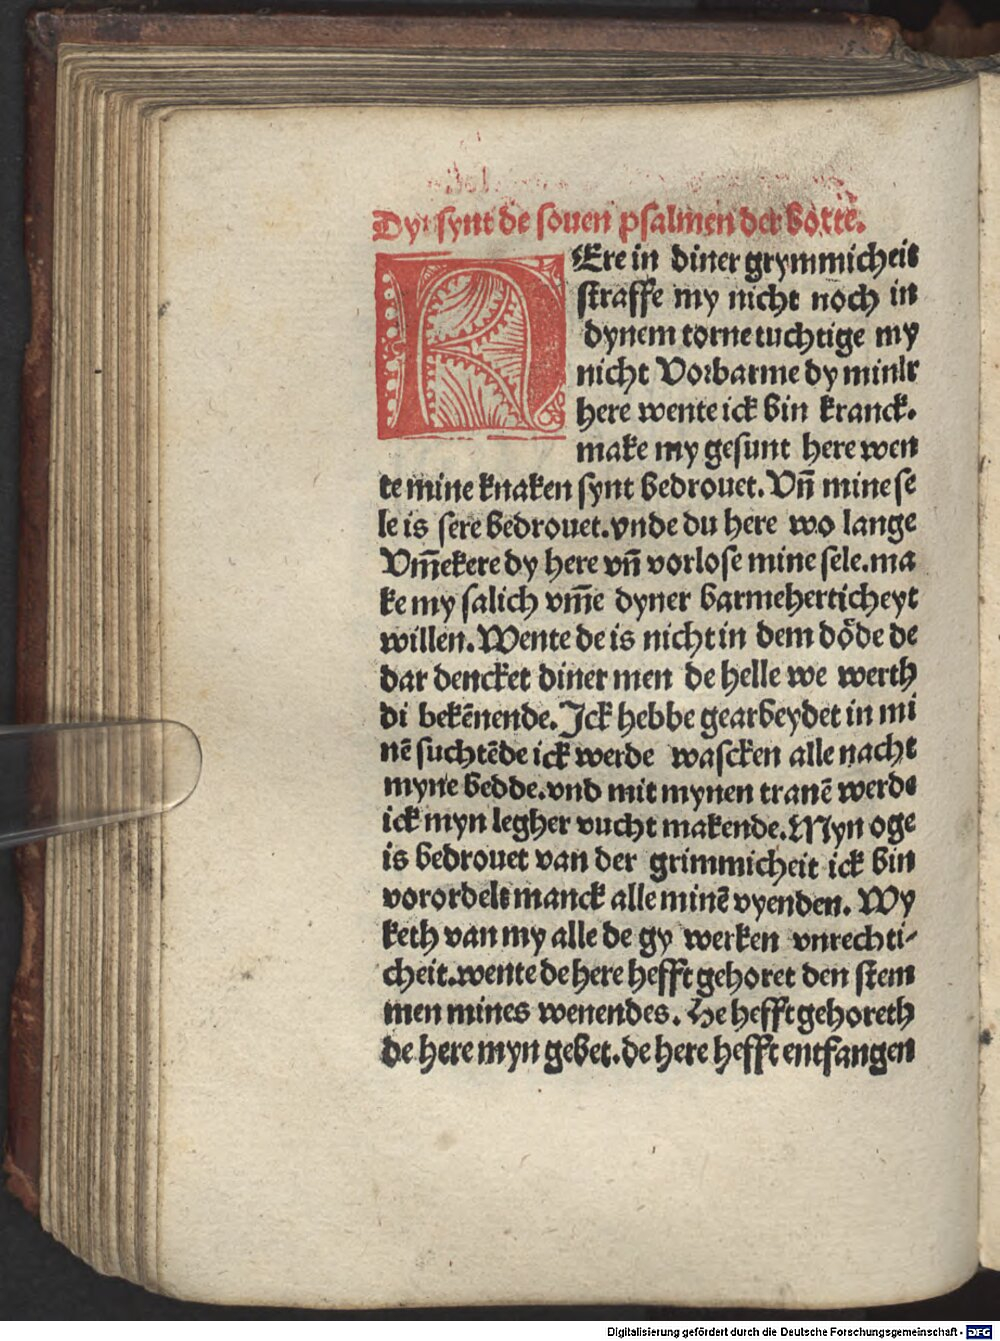 Dyt synt de souen psalmen der botte.
HEre in diner grymmicheit
straffe my nicht noch in
dynem torne tuchtige my
nicht Vorbarme dy minir
here wente ick bin kranck.
make my gesunt here wen
te mine knaken synt bedrouet. Vñ mine se
le is sere bedrouet. vnde du here wo lange
Vm̄ekere dy here vñ vorlose mine sele. ma
ke my salich vm̄e dyner barmeherticheyt
willen. Wente de is nicht in dem dode de
dar dencket diner men de helle we werth
di bekēnende. Ick hebbe gearbeydet in mi
nē suchtēde ick werde wascken alle nacht
myne bedde. vnd mit mynen tranē werde
ick myn legher vucht makende. Myn oge
is bedrouet van der grimmicheit ick bin
vorordelt manck alle minē vyenden. Wy
keth van my alle de gy werken vnrechti-
cheit. wente de here hefft gehoret den stem
men mines wenendes. He hefft gehoreth
de here myn gebet. de here hefft entfangen
Digitalisierung gefördert durch die Deutsche Forschungsgemeinschaft - DFG